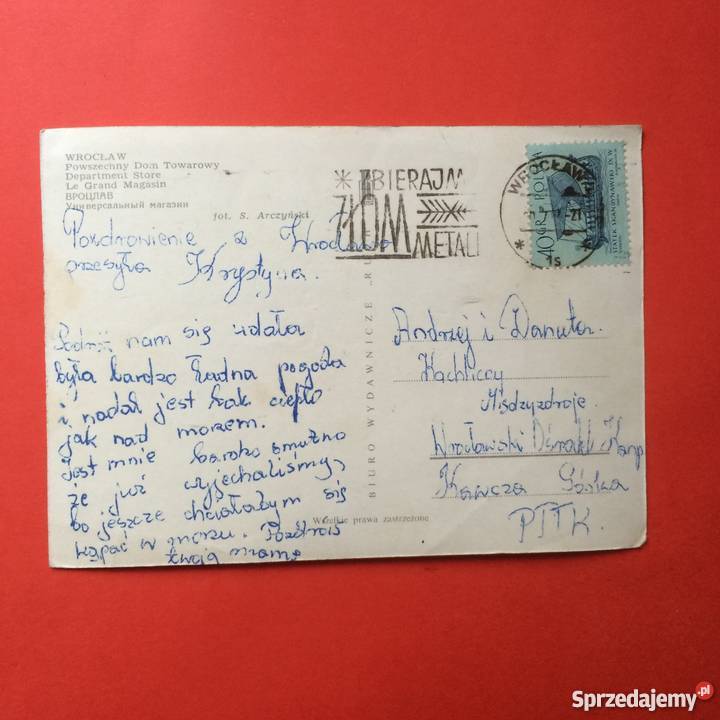 WROCŁAW
Powszechny Dom Towarowy
Department Store
Le Grand Magasin
ВРОЦЛАВ
Универсальный магазин
fot. S. Arczyński
ZBIERAJM
ZŁOM
METALI
WROCŁAW
1s
40 GR POLSKA
Pozdrowienie z Wrocławia
przesyła Krystyna.
Podróż nam się udała
była bardzo ładna pogoda
i nadal jest tak ciepło
jak nad morzem.
Jest mnie bardzo smutno
że już wyjechaliśmy,
bo jeszcze chciałabym się
kąpać w morzu. Pozdrów
twoją mamę
BIURO WYDAWNICZE „RUCH"
Wszelkie prawa zastrzeżone
Andrzej i Danuta
Kachliccy
Międzyzdroje
Wrocławski Ośrodek Kemp
Kawcza Górka
PTTK.
Sprzedajemy.pl